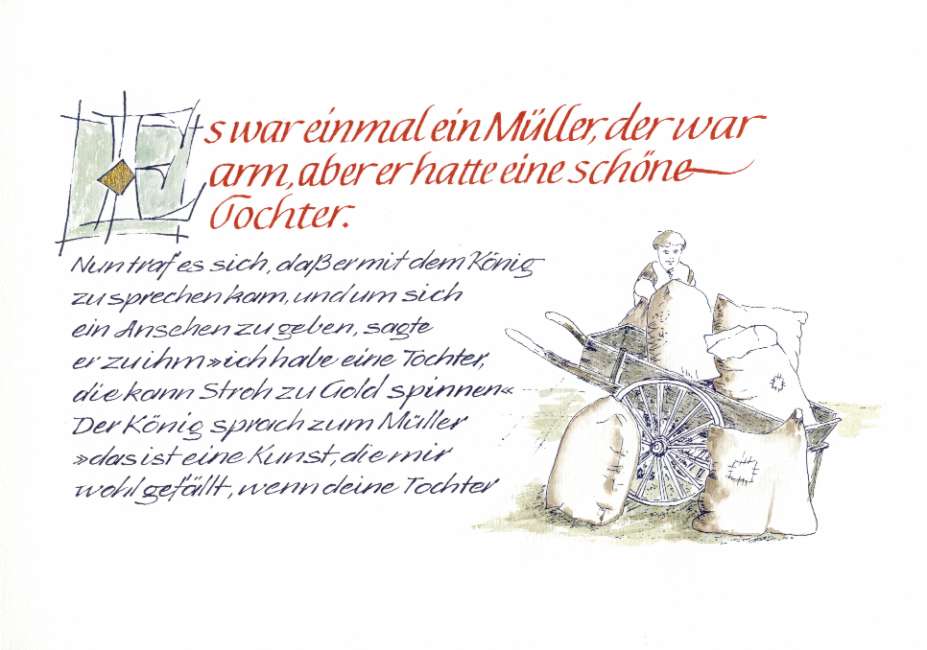 Es war einmal ein Müller, der war
arm, aber er hatte eine schöne
Tochter.
Nun traf es sich, daß er mit dem König
zu sprechen kam, und um sich
ein Ansehen zu geben, sagte
er zu ihm »ich habe eine Tochter,
die kann Stroh zu Gold spinnen«
Der König sprach zum Müller
»das ist eine Kunst, die mir
wohl gefällt, wenn deine Tochter